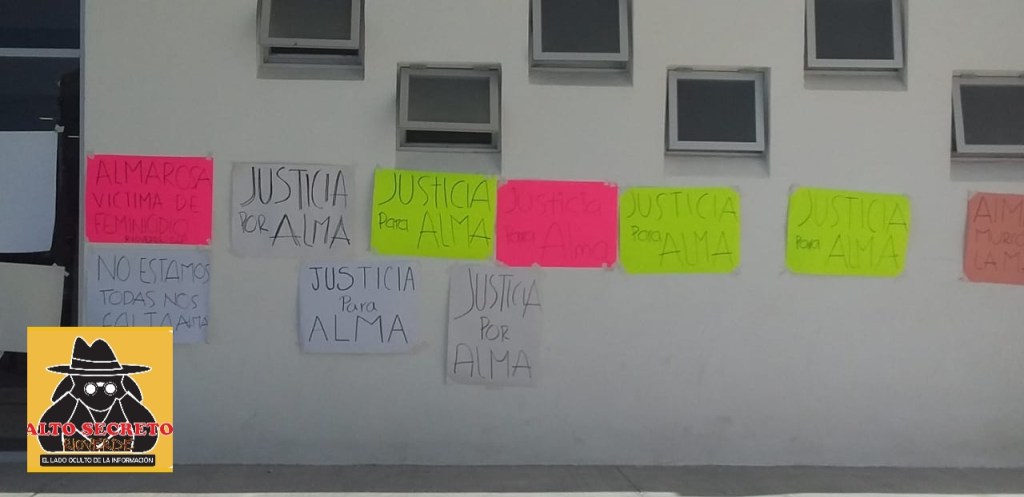 ALMAROSA
VICTIMA DE
FEMINICIDIO
JUSTICIA
POR ALMA
JUSTICIA
Para ALMA
Justicia
Para Alma
JUSTICIA
Para ALMA
JUSTICIA
Para ALMA
LA
NO ESTAMOS
TODAS NOS
FALTA ALMA
JUSTICIA
Para
ALMA
JUSTICIA
POR
ALMA
ALTO SECRETO
RIOVERDE
EL LADO OCULTO DE LA INFORMACIÓN